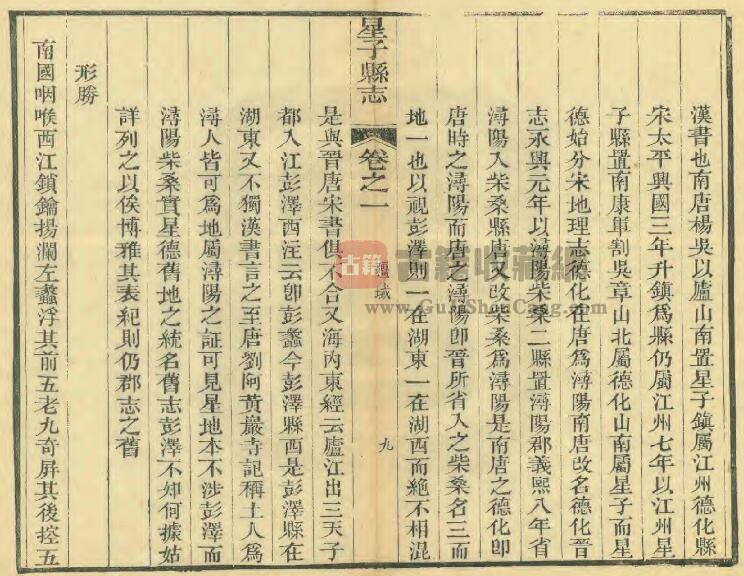 漢書也南唐楊吳以廬山南置星子鎮屬江州德化縣
宋太平興國三年升鎮爲縣仍屬江州七年以江州星
子縣置南康軍割吳章山北屬德化山南屬星子而星
德始分宋地理志德化在唐爲潯陽南唐改名德化晉
志永興元年以潯陽柴桑二縣置潯陽郡義熙八年省
潯陽入柴桑縣唐又改柴桑爲潯陽是南唐之德化卽
唐時之潯陽而唐之潯陽卽晉所省入之柴桑名三而
地一也以視彭澤則一在湖東一在湖西而絶不相混
星子縣志
卷之一
疆域
九
是與晉唐宋書俱不合又海內東經云廬江出三天子
都入江彭澤西注云卽彭蠡今彭澤縣西是彭澤縣在
湖東又不獨漢書言之至唐劉阿黃巖寺記稱土人爲
潯人皆可爲地屬潯陽之証可見星地本不涉彭澤而
潯陽柴桑實星德舊地之統名舊志彭澤不知何據姑
詳列之以俟博雅其表紀則仍郡志之舊
形勝
南國咽喉西江鎖鑰揚瀾左蠡浮其前五老九奇屏其後控五
古籍
古籍收藏網
www.GuJiShouCang.com